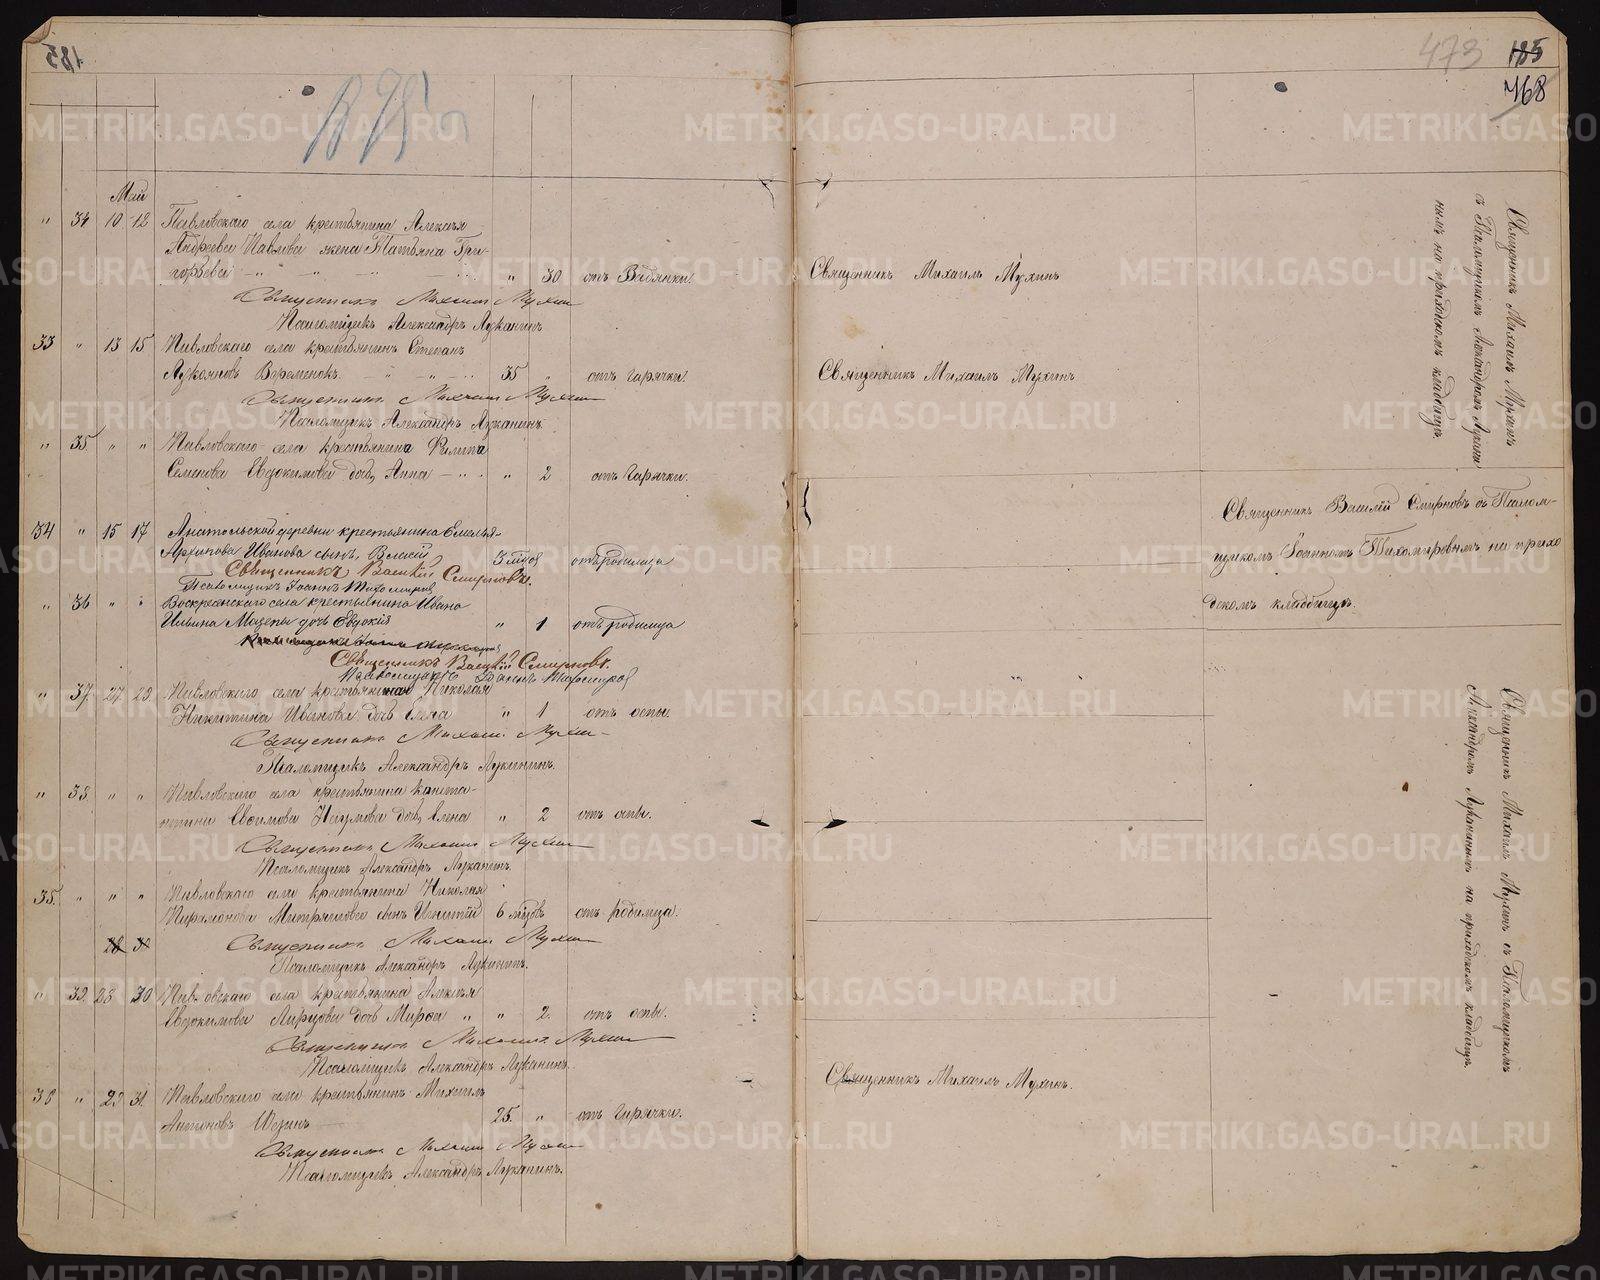 185
473
185
468
Май
" 34 10 12 Павловскаго села крестьянина Алексѣя
Андреева Павлова жена Татьяна Гри-
горьева " 30 отъ Водянки.
Священникъ Михаилъ Мухинъ
Священникъ Михаилъ Мухинъ
Псаломщикъ Александръ Луканинъ
33 " 13 15 Павловскаго села крестьянинъ Степанъ
Лукояновъ 35 " отъ горячки.
Священникъ Михаилъ Мухинъ
Священникъ Михаилъ Мухинъ
Псаломщикъ Александръ Луканинъ.
" 35. " " Павловскаго села крестьянина Филипа
Семенова Евдокимова дочь Анна " 2 отъ горячки.
34 " 15 17 Анатольской деревни крестьянина Емельяна
Архипова Иванова сынъ Власій 3 мѣс отъ родимца
Священникъ Василій Смирновъ.
Псаломщикъ Іоаннъ Тихомировъ
" 36 " " Воскресенскаго села крестьянина Ивана
Ильина Мазепы дочь Евдокія " 1 отъ родимца
Священникъ Василій Смирновъ.
Псаломщикъ Іоаннъ Тихомировъ
" 37. 27. 29. Павловскаго села крестьянина Николая
Никитина Иванова дочь Елена " 1 отъ оспы.
Священникъ Михаилъ Мухинъ
Псаломщикъ Александръ Луканинъ.
" 38. " " Павловскаго села крестьянина Конста-
нтина Евсимова Наумова дочь Елена " 2 отъ оспы.
Священникъ Михаилъ Мухинъ
Псаломщикъ Александръ Луканинъ.
35. " " " Павловскаго села крестьянина Николая
Парамонова сынъ Игнатій 6 мѣсъ отъ родимца.
28 30
Священникъ Михаилъ Мухинъ
Псаломщикъ Александръ Луканинъ.
" 39. 28 30 Павловскаго села крестьянина Алексѣя
Евдокимова дочь Марѳа " " 2. отъ оспы.
Священникъ Михаилъ Мухинъ
Псаломщикъ Александръ Луканинъ.
36 " 29 31 Павловскаго села крестьянинъ Михаилъ
Антоновъ 25. " отъ горячки.
Священникъ Михаилъ Мухинъ
Псаломщикъ Александръ Луканинъ.
Священникъ Михаилъ Мухинъ.
Священникъ Михаилъ Мухинъ
съ Псаломщикомъ Александромъ Лукани
нымъ на приходскомъ кладбищѣ.
Священникъ Василій Смирновъ съ Псалом-
щикомъ Іоанномъ Тихомировымъ на прихо
дскомъ кладбищѣ.
Священникъ Михаилъ Мухинъ съ Псаломщикомъ
Александромъ Луканинымъ на приходскомъ кладбищѣ.
METRIKI.GASO-URAL.RU